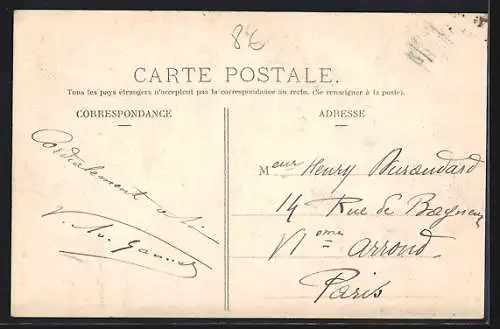 86
CARTE POSTALE.
Tous les pays étrangers n'acceptent pas la correspondance au recto. (Se renseigner à la poste).
CORRESPONDANCE
ADRESSE
Cordialement à
Meur Henry
14 Rue de Bagneux
VIeme Arrond.
Paris